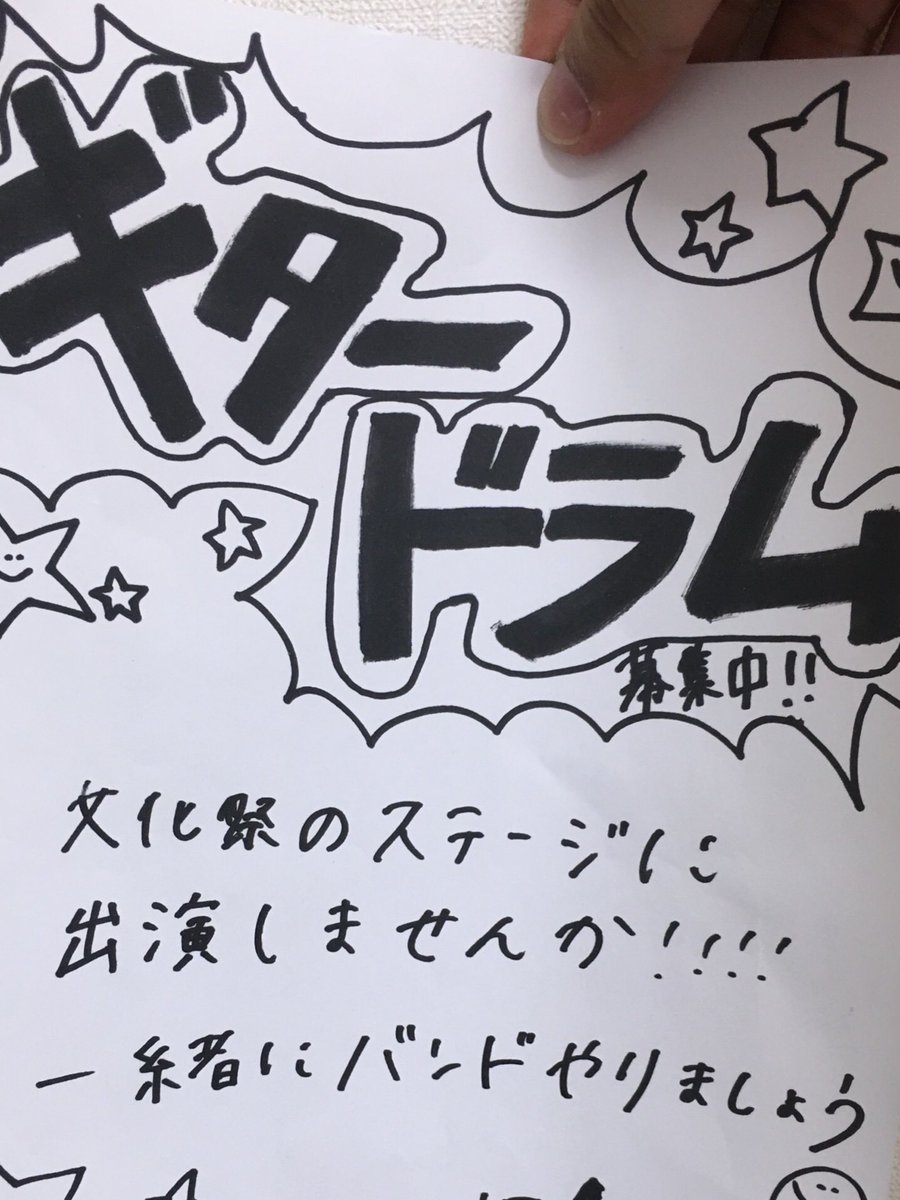 ギター
ドラム
募集中!!
文化祭のステージに
出演しませんか!!!!
一緒にバンドやりましょう